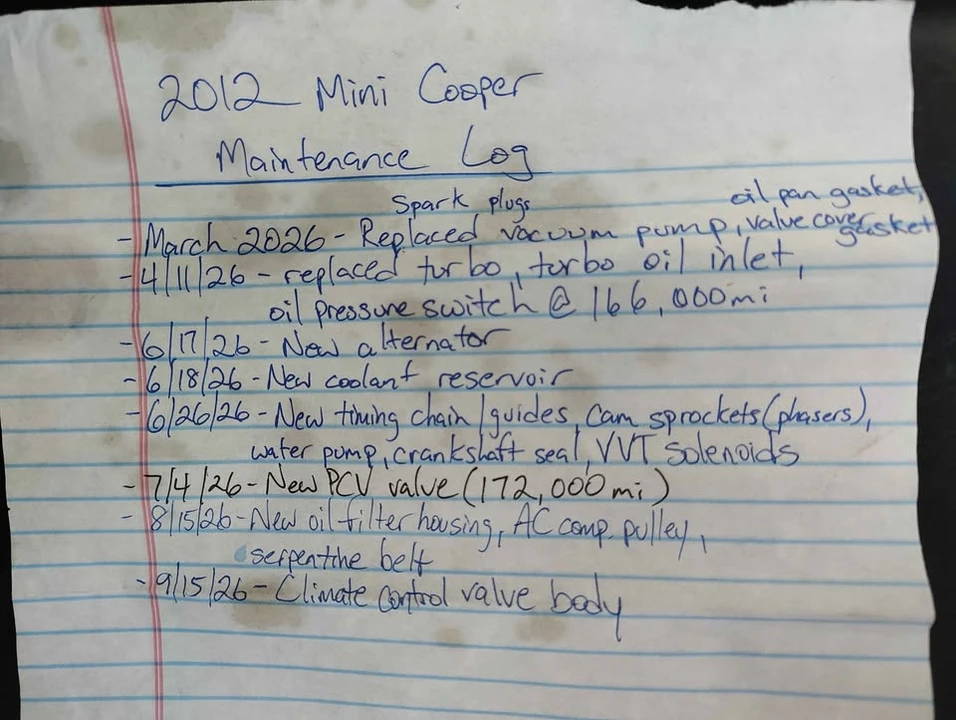 2012 Mini Cooper
Maintenance Log
Spark plugs oil pan gasket,
- March 2026 - Replaced vacuum pump, valve cover gasket
- 4/11/26 - replaced turbo, turbo oil inlet,
oil pressure switch @ 166,000mi
- 6/17/26 - New alternator
- 6/18/26 - New coolant reservoir
- 6/26/26 - New timing chain/guides, cam sprockets (phasers),
water pump, crankshaft seal, VVT solenoids
- 7/4/26 - New PCV valve (172,000 mi)
- 8/15/26 - New oil filter housing, AC comp. pulley,
serpentine belt
- 9/15/26 - Climate control valve body